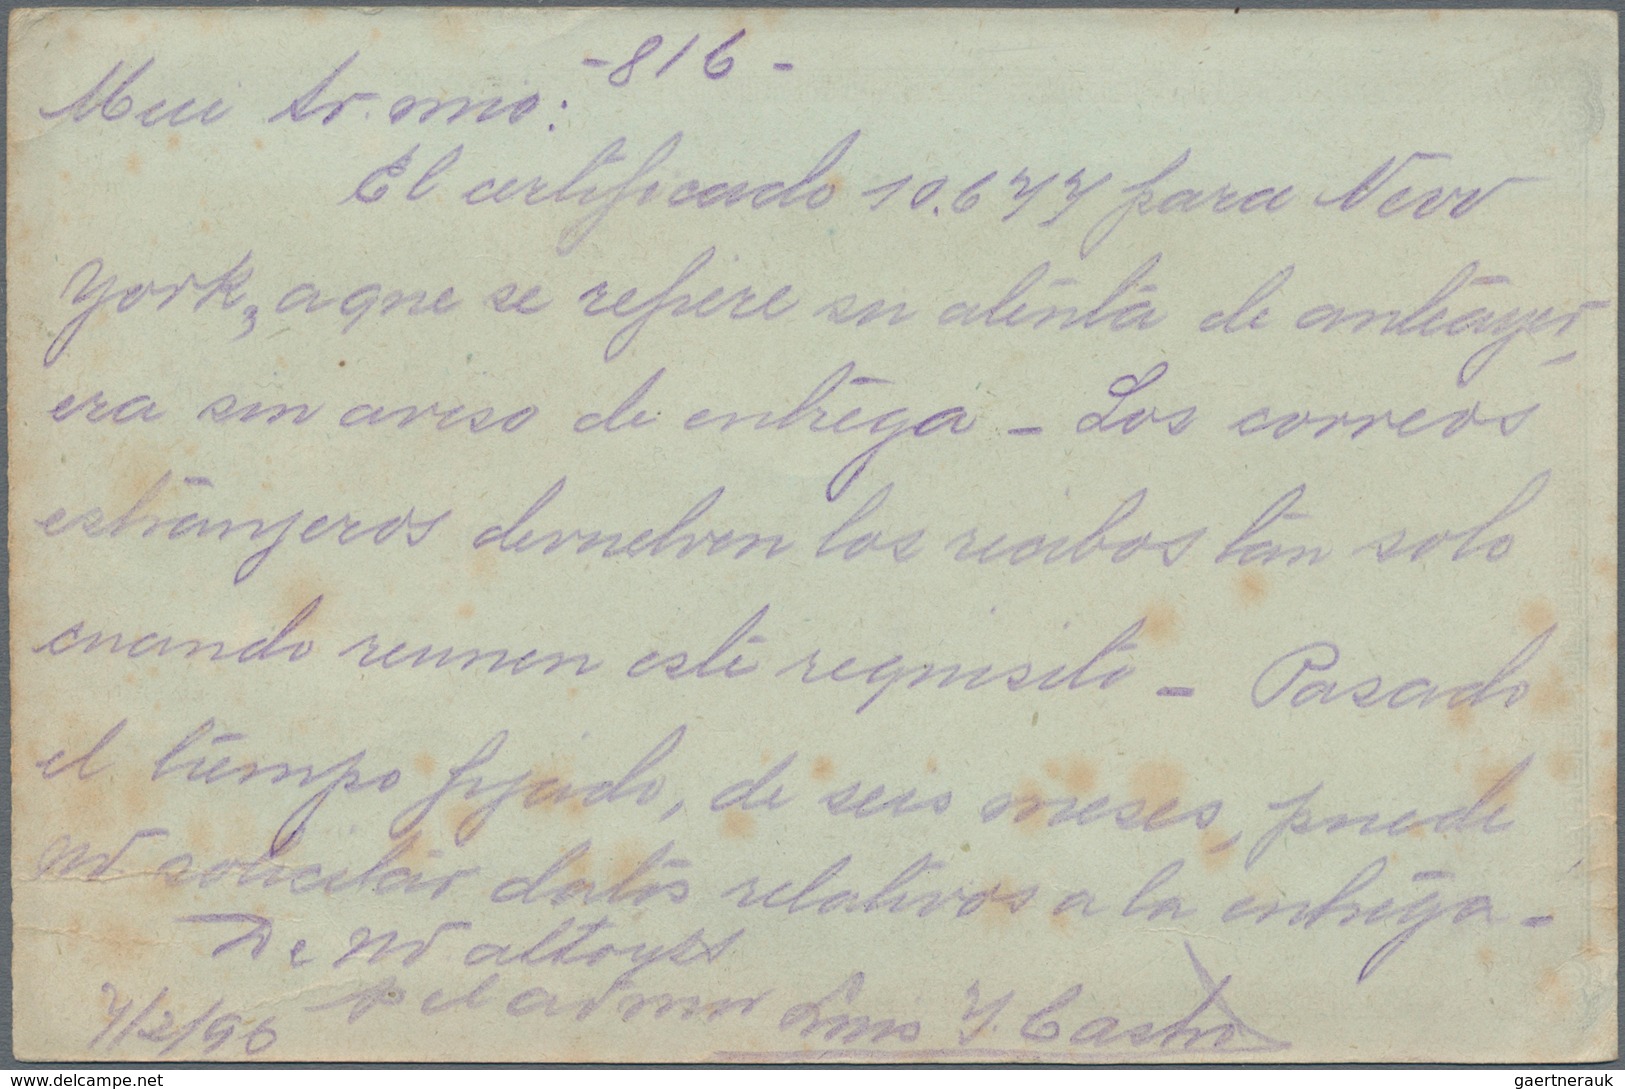 - 816 -
Mui Sr. mio:
El certificado 10.677 para New
York, a que se refiere su atenta de anteayer,
era sin aviso de entrega - Los correos
estranjeros devuelven los recibos tan solo
cuando reunen este requisito - Pasado
el tiempo fijado, de seis meses, puede
solicitar datos relativos a la entrega -
De atto
p el admor Luis Y. Castro
7/2/96
gaertnerauk